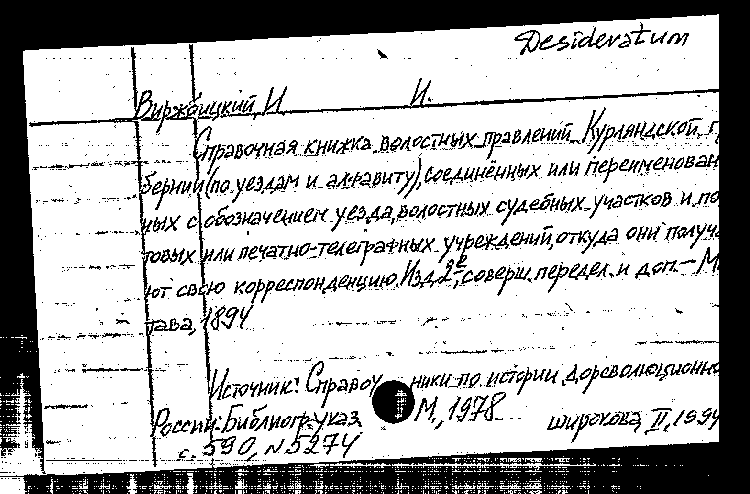 Desideratum
Виржбицкий, И. И.
Справочная книжка волостных правлений Курляндской г
бернии (по уездам и алфавиту), соединённых или переименован
ных с обозначением уезда, волостных судебных участков и по
товых или печатно-телеграфных учреждений, откуда они получа
ют свою корреспонденцию. Изд. 2е, соверш. передел. и доп. – М
тава, 1894
Источник: Справочники по истории дореволюционно
России: Библиогр. указ. М., 1978
с. 590, N 5274
широкова, II, 1994